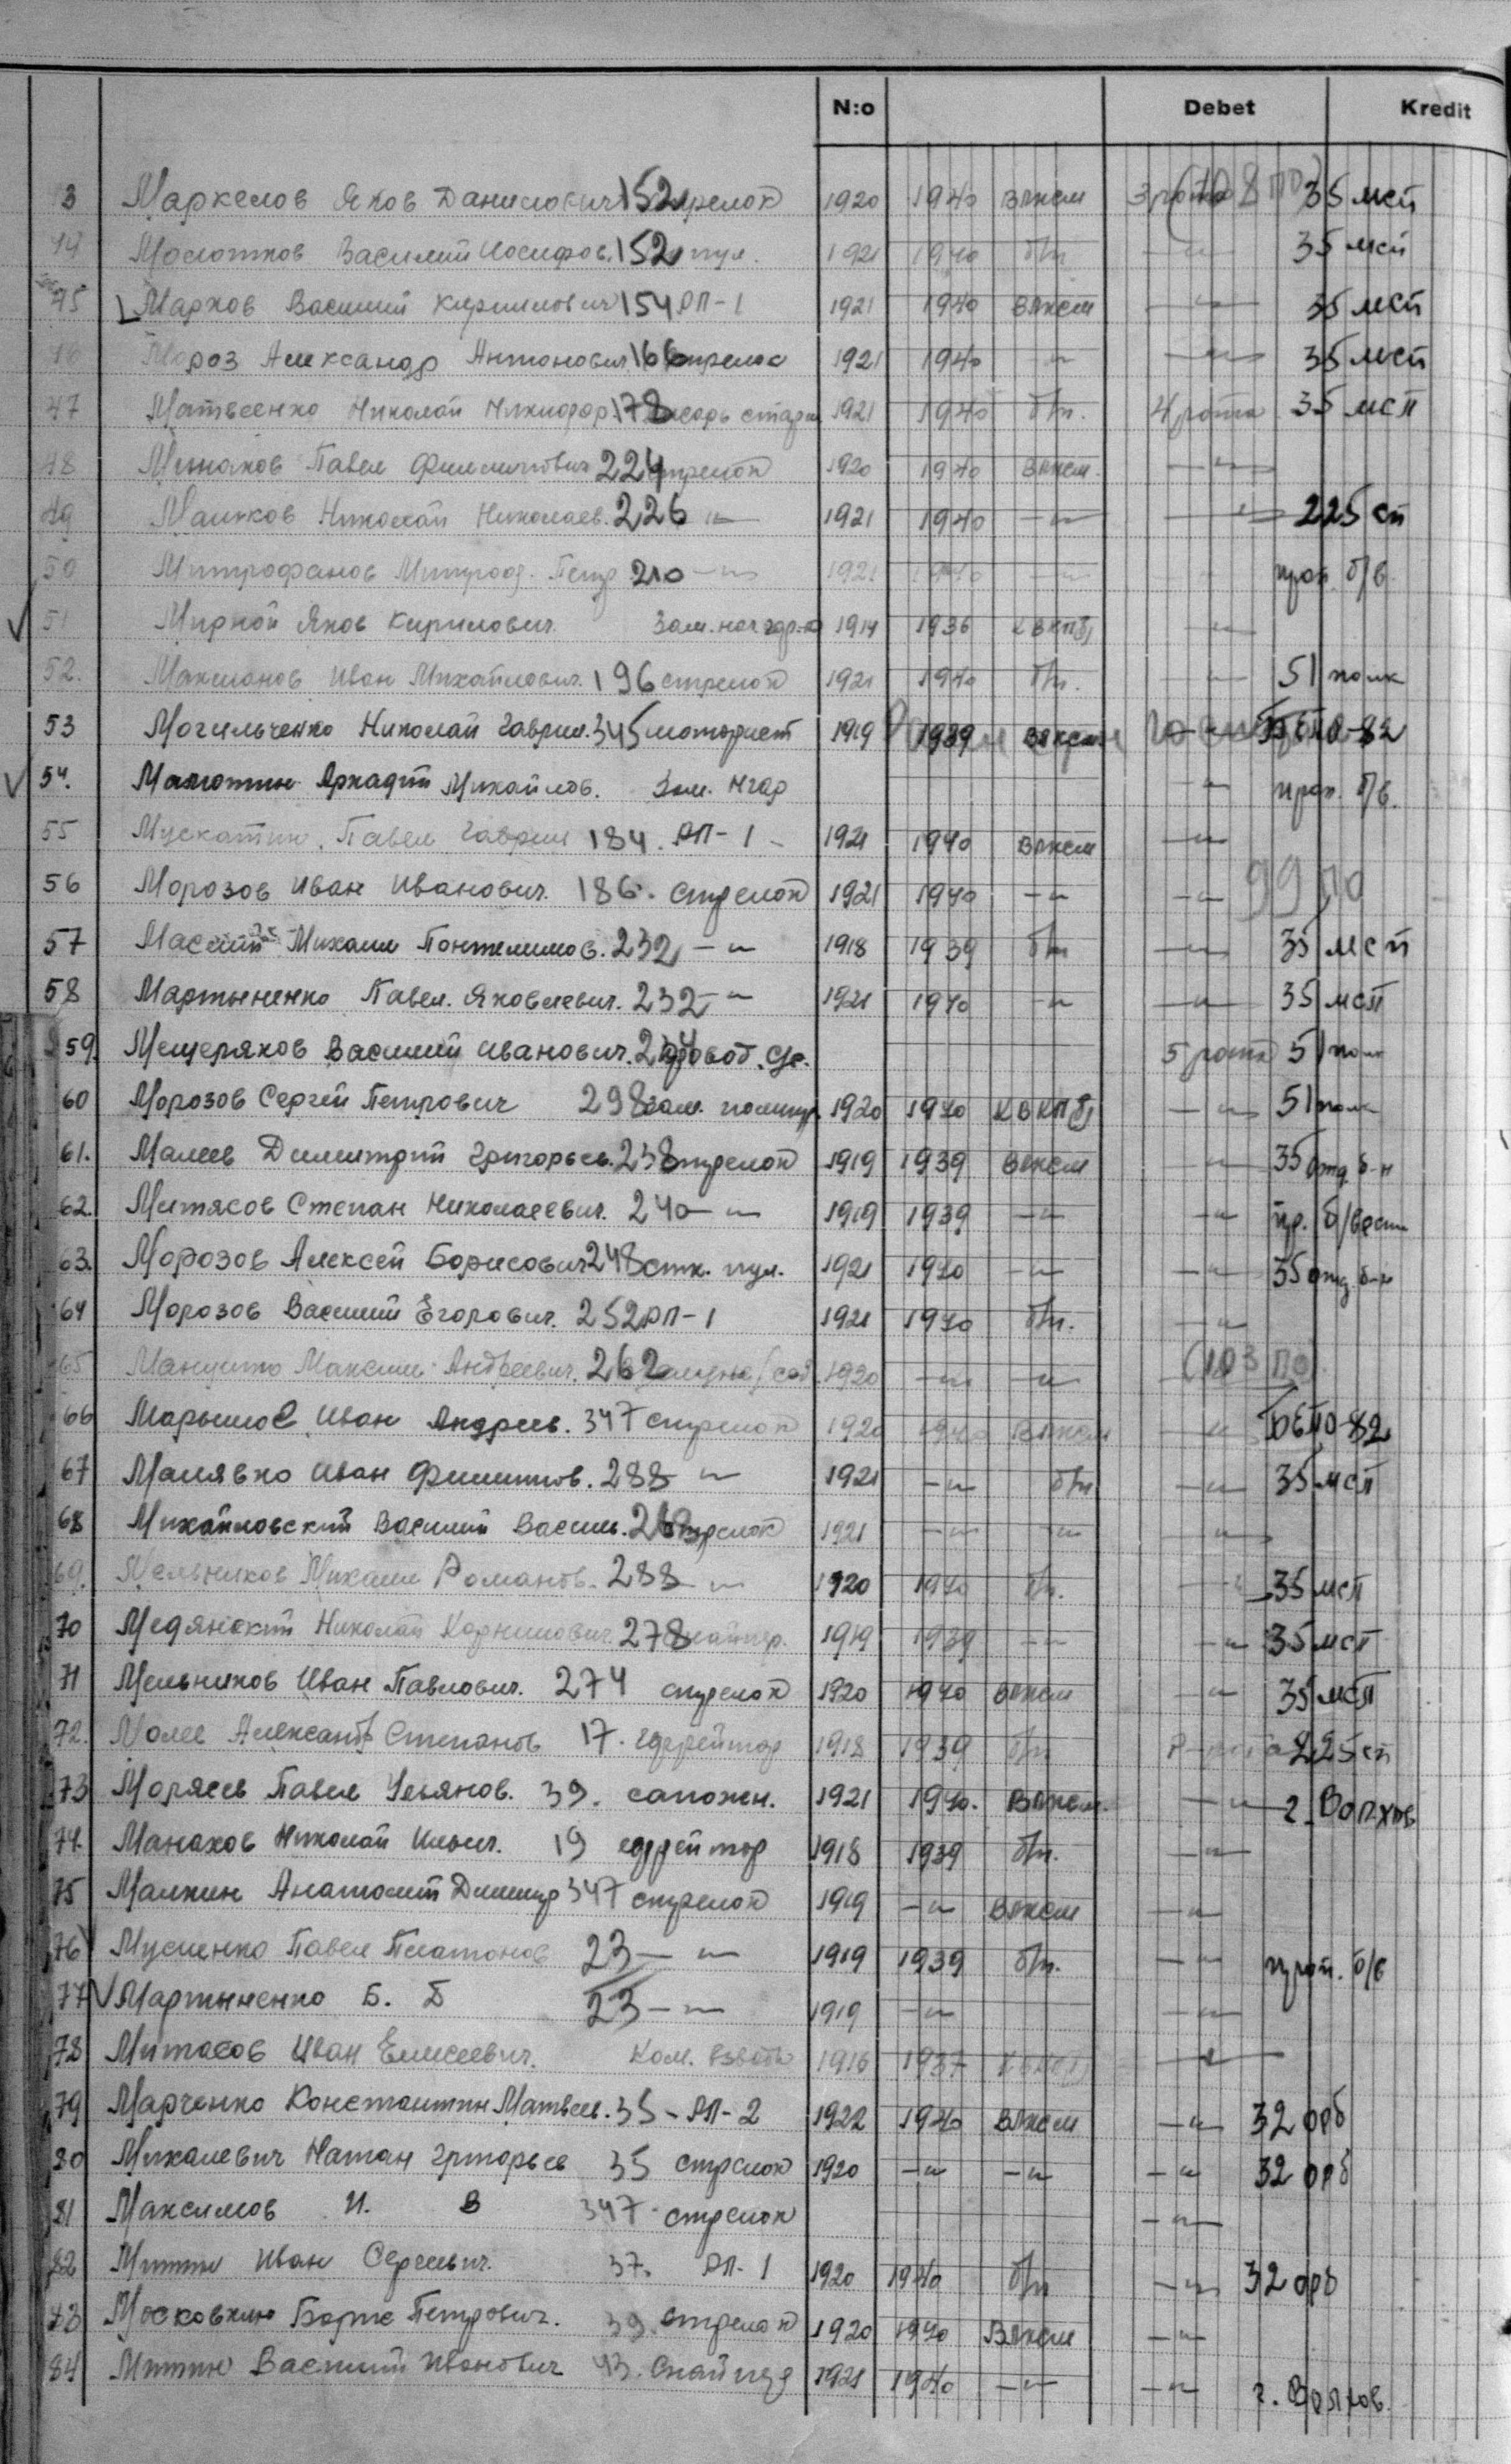 N:o Debet Kredit
3 Маркелов Яков Данилович 152 стрелок 1920 1940 ВЛКСМ 3 рота (108 ПО) 35 мсп
44 Молотков Василий Иосифов. 152 пул. 1921 1940 б/п —"— 35 мсп
45 Марков Василий Кириллович 154 РП-1 1921 1940 ВЛКСМ —"— 35 мсп
46 Мороз Александр Антонович 166 стрелок 1921 1940 —"— —"— 35 мсп
47 Матвеенко Николай Никифор. 178 1921 1940 б/п. 4 рота 35 мсп
48 Минаков Павел Филиппович 224 стрелок 1920 1940 ВЛКСМ. —"—
49 Малков Николай Николаев. 226 —"— 1921 1940 —"— —"— 225 сп
50 Митрофанов Митроф. Петр 210 —"— 1921 1940 —"— —"— проп. б/в.
51 Мирной Яков Кирилович. Зам. 1914 1936 КВКП(б) —"—
52. Макшанов Иван Михайлович. 196 стрелок 1921 1940 б/п. —"— 51 полк
53 Могильченко Николай Гаврил. 345 моторист 1919 1939 ВЛКСМ —"— БЕПО-82
54. Малютин Аркадий Михайлов. Зам. —"— проп. б/в.
55 Мускатин. Павел Гаврил 184. РП-1 1921 1940 ВЛКСМ —"—
56 Морозов Иван Иванович. 186. стрелок 1921 1940 —"— —"— 99 ПО
57 Масий Михаил Понтелимов. 232 —"— 1918 1939 б/п —"— 35 мсп
58 Мартыненко Павел. Яковлевич. 232 —"— 1921 1940 —"— —"— 35 мсп
59. Мещеряков Василий Иванович. 5 рота 51 полк
60 Морозов Сергей Петрович 298 зам. политр. 1920 1940 КВКП(б) —"— 51 полк
61. Малеев Димитрий Григорьев. 238 стрелок 1919 1939 ВЛКСМ —"— 35 отд. б-н
62. Митясов Степан Николаеевич. 240 —"— 1919 1939 —"— —"— пр. б/вести
63. Морозов Алексей Борисович 248 стк. пул. 1921 1940 —"— —"— 35 отд. б-н
64 Морозов Василий Егорович. 252 РП-1 1921 1940 б/п. —"—
65 Максим Андреевич. 262 1920 —"— —"— (103 ПО)
66 Марышов Иван Андреев. 347 стрелок 1920 1940 ВЛКСМ —"— БЕПО-82
67 Малявко Иван Филиппов. 288 —"— 1921 —"— б/п —"— 35 мсп
68 Михайловский Василий Василь. стрелок 1921 —"— —"— —"—
69. Мельников Михаил Романов. 288 —"— 1920 1940 б/п. —"— 35 мсп
70 Медянский Николай Корнилович. 278 снайпер. 1919 1939 —"— —"— 35 мсп
71 Мельников Иван Павлович. 274 стрелок 1920 1940 ВЛКСМ —"— 35 мсп
72. Молев Александр Степанов 17. ефрейтор 1918 1939 б/п 225 сп
73 Моряев Павел Ульянов. 39. сапожн. 1921 1940. ВЛКСМ. —"— г. Волхов
74. Манахов Николай Ильич. 19 ефрейтор 1918 1939 б/п. —"—
75 Малкин Анатолий Димитр 347 стрелок 1919 —"— ВЛКСМ —"—
76 Мусиенко Павел Платонов 23 —"— 1919 1939 б/п. —"— проп. б/в
77 Мартыненко Б. Д 23 —"— 1919 —"— —"—
78 Митасов Иван Елисеевич. Ком. взвода 1916 1937 —"—
79 Марченко Константин Матвеев. 35 - РП-2 1922 1940 ВЛКСМ —"— 32 орб
80 Михалевич Натан Григорьев 35 стрелок 1920 —"— —"— —"— 32 орб
81 Максимов И. В 347 стрелок —"—
82 Митин Иван Сергеевич. 37. РП-1 1920 1940 б/п —"— 32 орб
83 Московкин Борис Петрович. 39. стрелок 1920 1940 ВЛКСМ —"—
84 Митин Василий Иванович 43. Снайпер 1921 1940 —"— —"— г. Волхов.